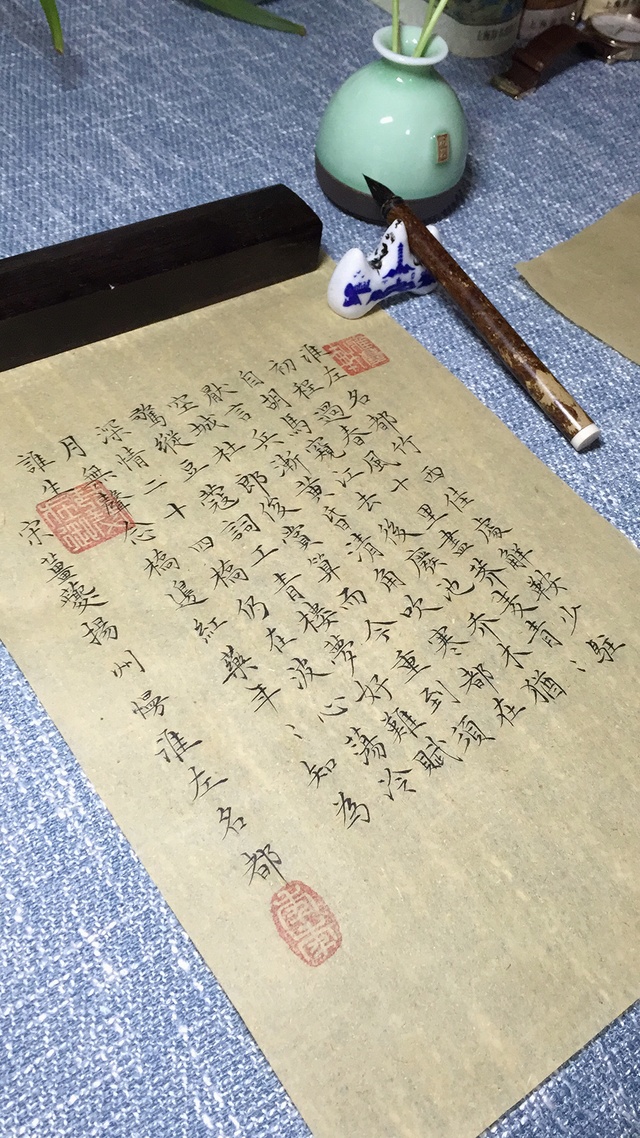 淮左名都竹西佳處解鞍少駐
初程過春風十里盡荠麦青〻
自胡馬窺江去後廢池乔木猶
厭言兵漸黃昏清角吹寒都在
空城杜郎俊賞算而今重到須
驚縱豆蔻詞工青樓夢好難賦
深情二十四橋仍在波心蕩冷
月無聲念橋邊紅藥年〻知為
誰生
宋薑夔揚州慢淮左名都